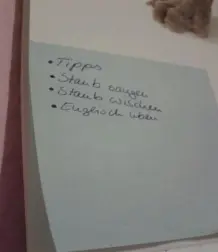 • Tipps
• Staub saugen
• Staub wischen
• Englisch üben